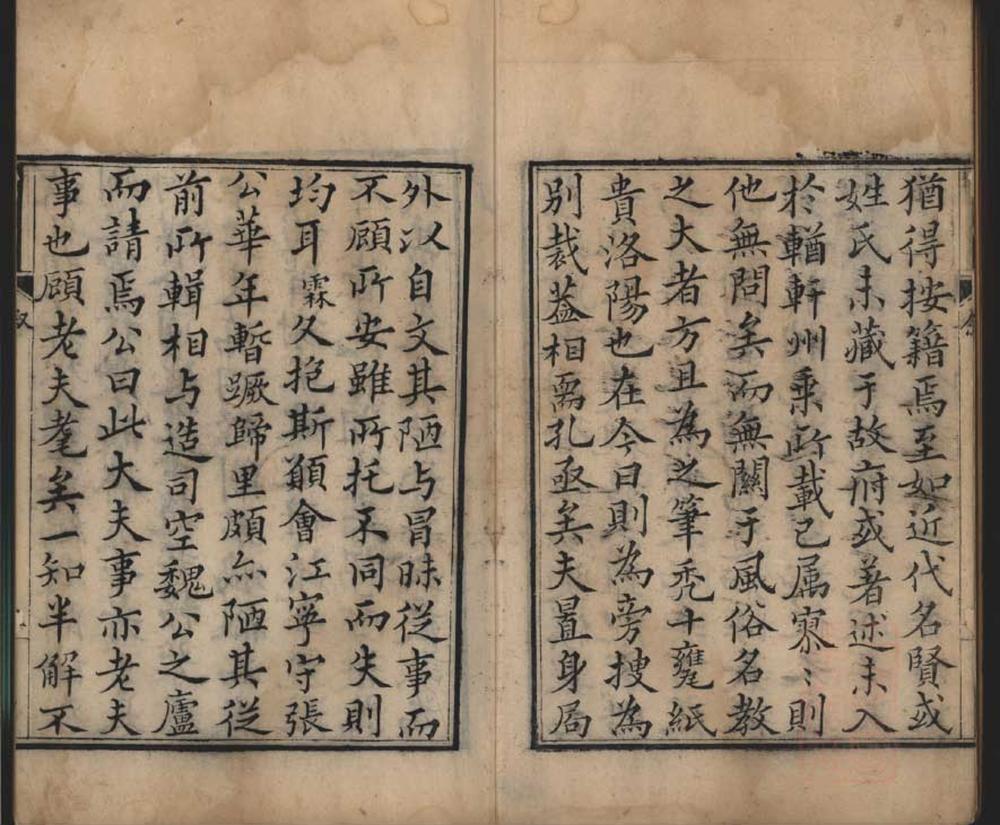 猶得按籍焉至如近代名賢或
姓氏未藏于故府或著述未入
於輶軒州乘所載已属寥〻則
他無問矣而無關于風俗名教
之大者方且為之筆禿十甕紙
貴洛陽也在今日則為旁搜為
別裁葢相需孔亟矣夫置身局
外以自文其陋与冒昧從事而
不顧所安雖所托不同而失則
均耳霖久抱斯願會江寧守張
公華年暫蹶歸里頗亦陋其從
前所輯相与造司空魏公之廬
而請焉公曰此大夫事亦老夫
事也顧老夫耄矣一知半解不
叙